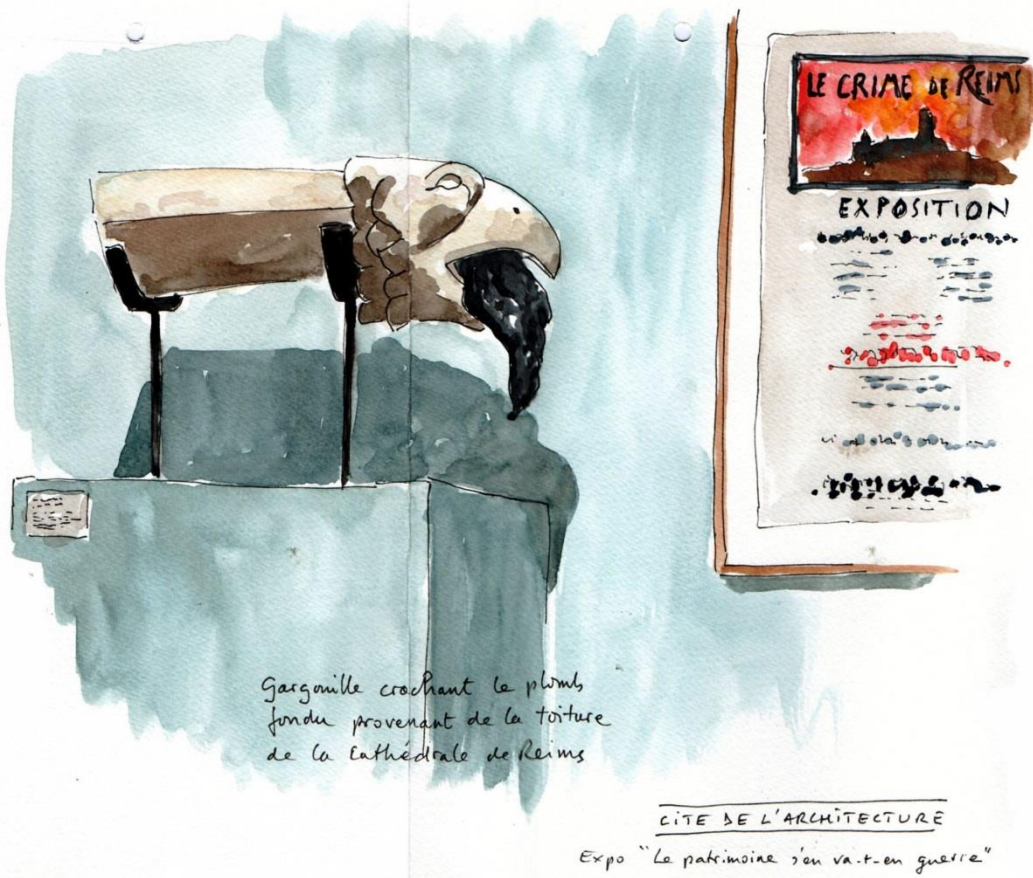 LE CRIME DE REIMS
EXPOSITION
Gargouille crachant le plomb
fondu provenant de la toiture
de la Cathédrale de Reims
CITE DE L'ARCHITECTURE
Expo "Le patrimoine s'en va-t-en guerre"